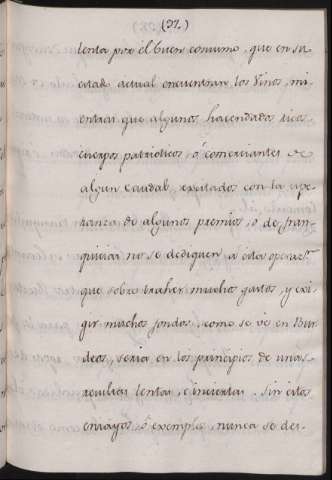 (32)
lenta por él buen consumo, que en su
estado actual encuentran los Vinos, mi
entras que algunos hacendados ricos
cuerpos patrioticos, ó comerciantes de
algun Caudal, excitados con la espe
ranza de algunos premios, o de fran
quicias no se dediquen a esta operacn.
que sobre traher muchos gastos, y exi
gir muchos fondos, como se vé en Bur
deos, seria en los principios de unas
resultas lentas, é inciertas. Sin estos
ensayos, ó exemplos, nunca se des-